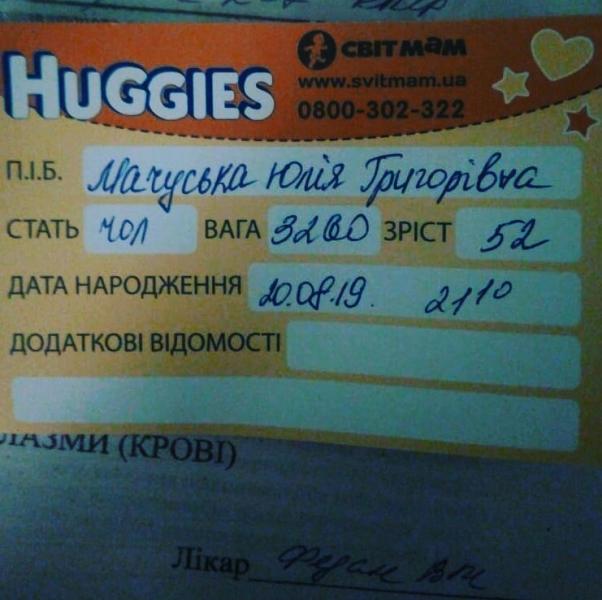 HUGGIES
СВІТ МАМ
www.svitmam.ua
0800-302-322
П.І.Б. Мачуська Юлія Григорівна
СТАТЬ чол ВАГА 3200 ЗРІСТ 52
ДАТА НАРОДЖЕННЯ 20.08.19. 21 10
ДОДАТКОВІ ВІДОМОСТІ
ЛАЗМИ (КРОВІ)
Лікар